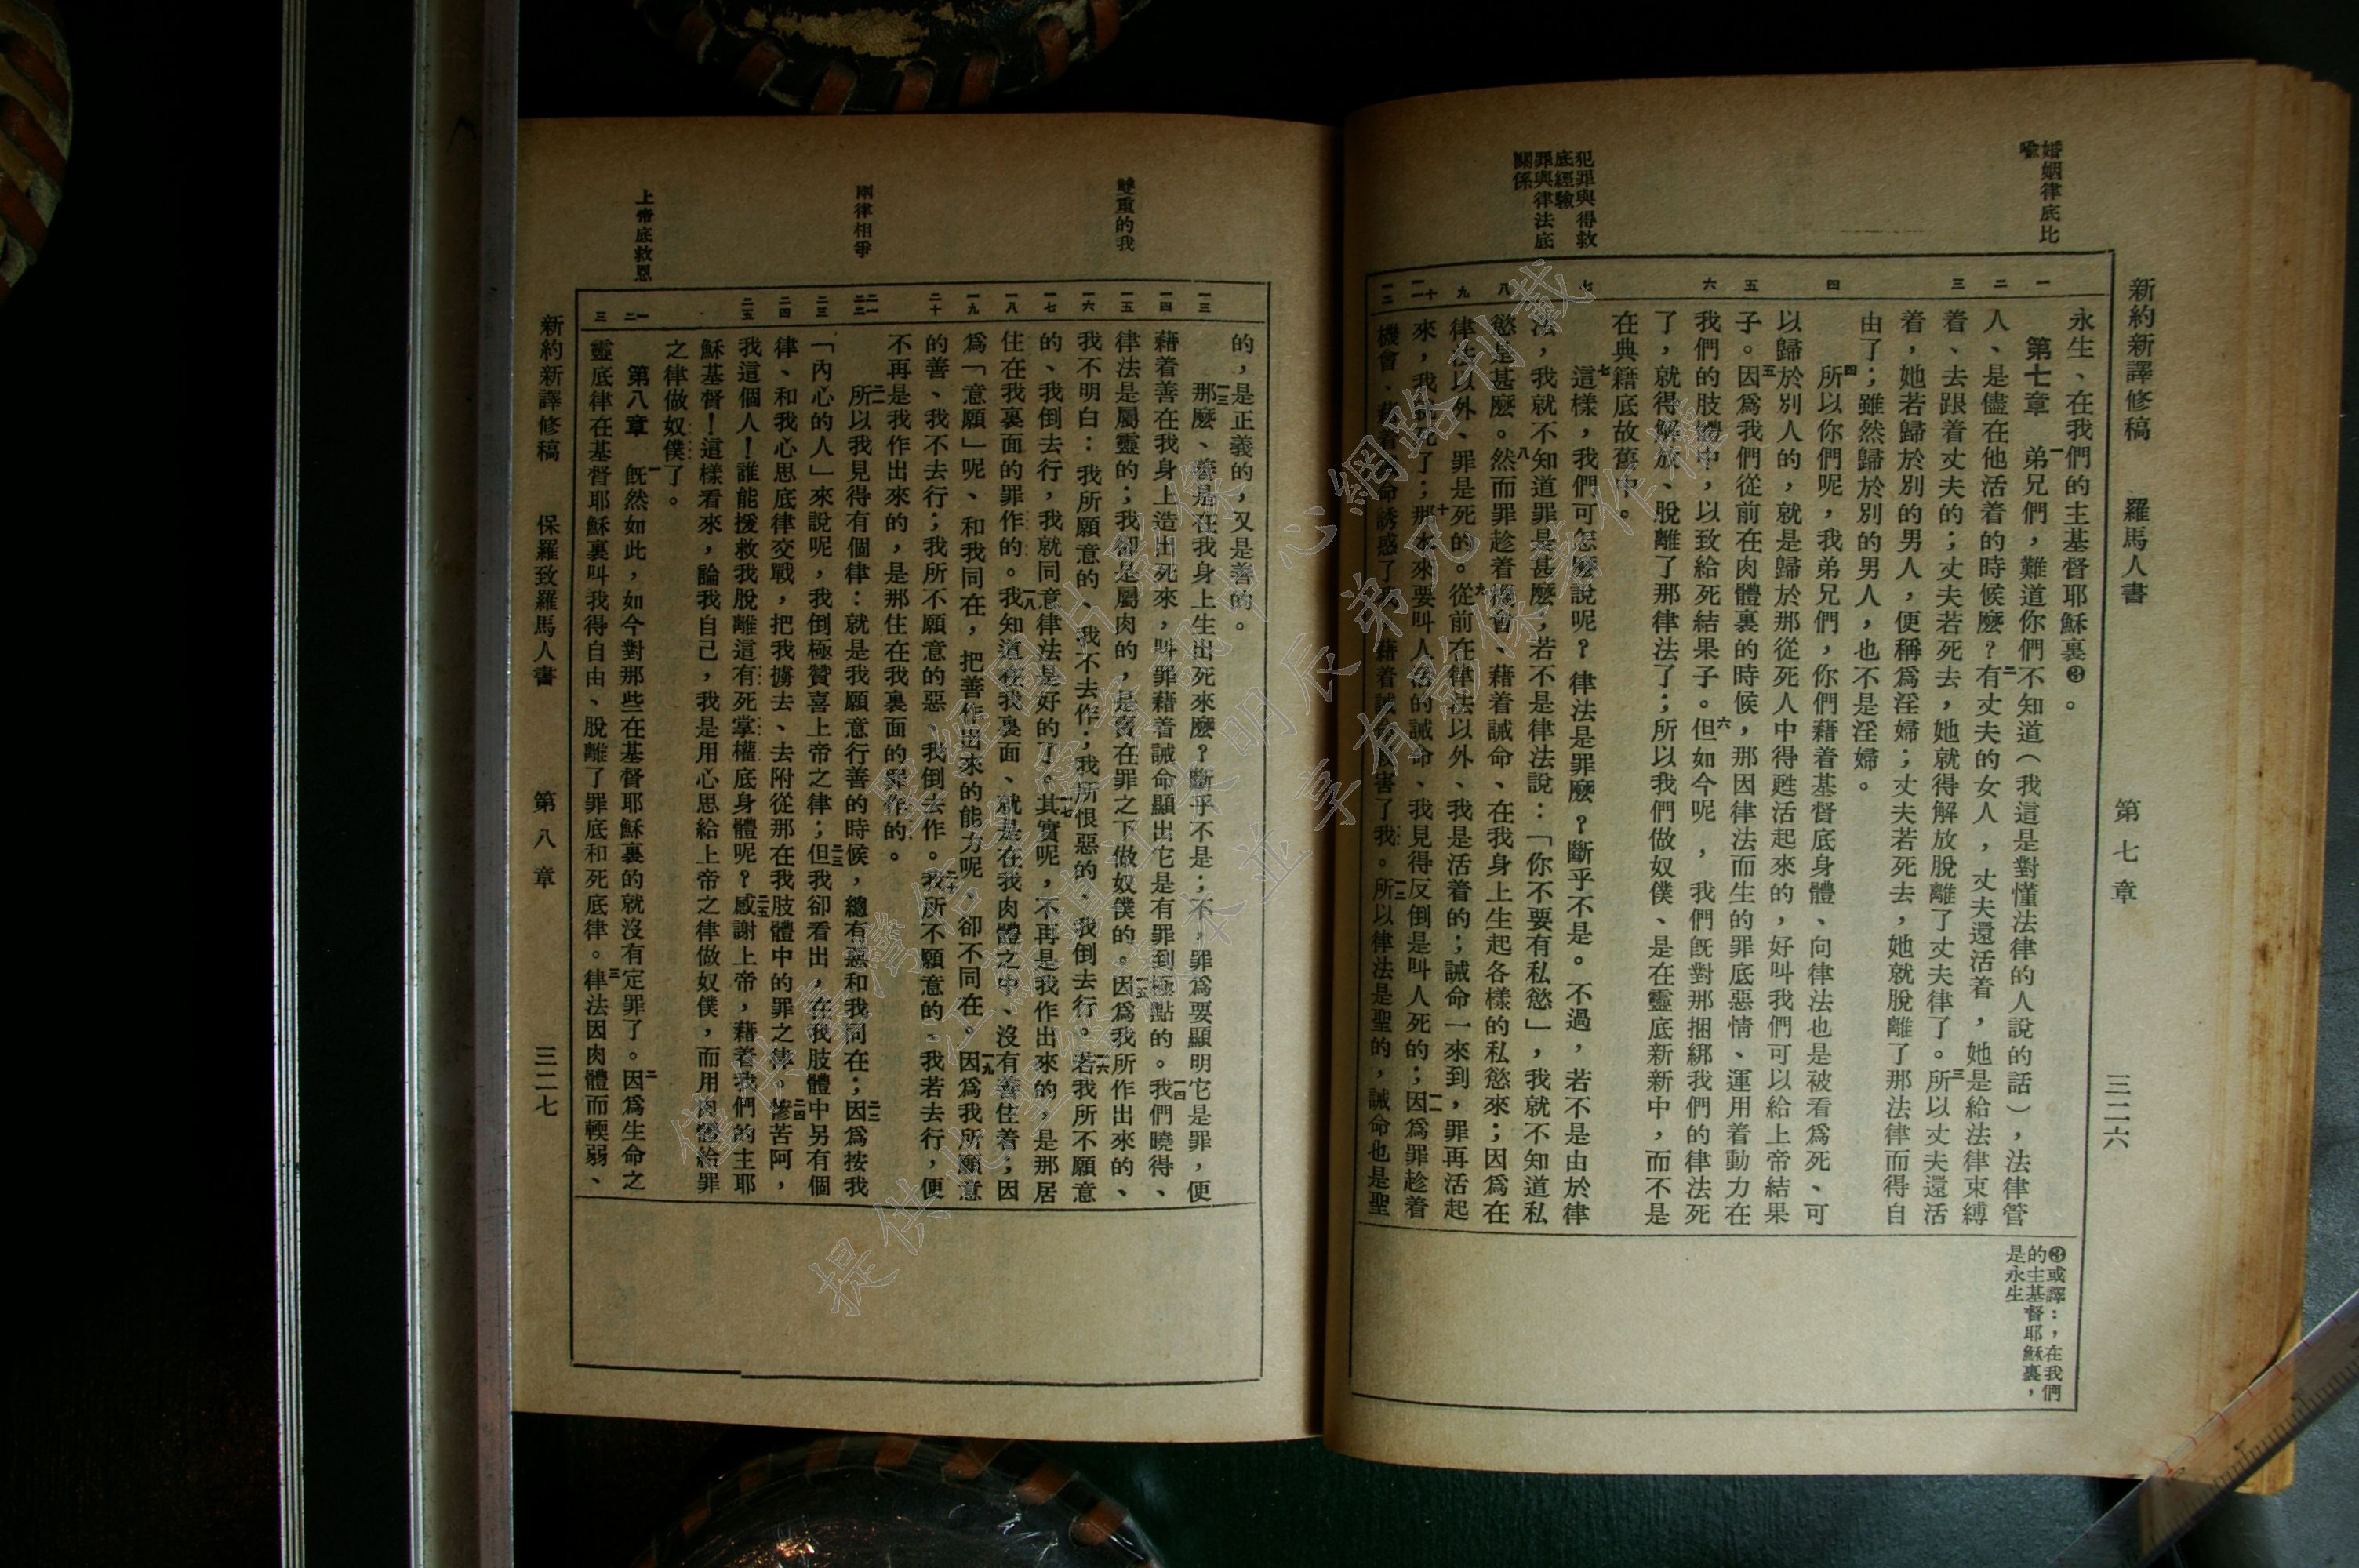 新約新譯修稿　羅馬人書　第七章　三二六
婚姻律底比
喩
犯罪與得救
底經驗
罪與律法底
關係
一
二
三
四
五
六
七
八
九
十
一一
一二
永生、在我們的主基督耶穌裏❸。
第七章　一弟兄們，難道你們不知道（我這是對懂法律的人說的話），法律管
人、是儘在他活着的時候麼？二有丈夫的女人，丈夫還活着，她是給法律束縛
着、去跟着丈夫的；丈夫若死去，她就得解放脫離了丈夫律了。三所以丈夫還活
着，她若歸於別的男人，便稱爲淫婦；丈夫若死去，她就脫離了那法律而得自
由了；雖然歸於別的男人，也不是淫婦。
四所以你們呢，我弟兄們，你們藉着基督底身體、向律法也是被看爲死、可
以歸於別人的，就是歸於那從死人中得甦活起來的，好叫我們可以給上帝結果
子。五因爲我們從前在肉體裏的時候，那因律法而生的罪底惡情、運用着動力在
我們的肢體中，以致給死結果子。六但如今呢，我們旣對那捆綁我們的律法死
了，就得解放、脫離了那律法了；所以我們做奴僕、是在靈底新新中，而不是
在典籍底故舊中。
七這樣，我們可怎麼說呢？律法是罪麼？斷乎不是。不過，若不是由於律
法，我就不知道罪是甚麼，若不是律法說：「你不要有私慾」，我就不知道私
慾是甚麼。八然而罪趁着機會、藉着誡命、在我身上生起各樣的私慾來；因爲在
律法以外、罪是死的。九從前在律法以外、我是活着的；誡命一來到，罪再活起
來，我死了；十那本來要叫人活的誡命、我見得反倒是叫人死的；一一因爲罪趁着
機會、藉着誡命誘惑了我、藉着誡命害了我。一二所以律法是聖的，誡命也是聖
❸或譯：，在我們
的主基督耶穌裏，
是永生
雙重的我
兩律相爭
上帝底救恩
一三
一四
一五
一六
一七
一八
一九
二十
二一
二二
二三
二四
二五
一
二
三
的，是正義的，又是善的。
一三那麼、善是在我身上生出死來麼？斷乎不是；不，罪爲要顯明它是罪，便
藉着善在我身上造出死來，叫罪藉着誡命顯出它是有罪到極點的。一四我們曉得、
律法是屬靈的；我卻是屬肉的，是賣在罪之下做奴僕的。一五因爲我所作出來的、
我不明白：我所願意的、我不去作；我所恨惡的、我倒去行。一六若我所不願意
的、我倒去行，我就同意律法是好的了。一七其實呢，不再是我作出來的，是那居
住在我裏面的罪作的。一八我知道在我裏面、就是在我肉體之中、沒有善住着；因
爲「意願」呢、和我同在，把善作出來的能力呢，卻不同在。一九因爲我所願意
的善、我不去行；我所不願意的惡、我倒去作。二十我所不願意的、我若去行，便
不再是我作出來的，是那住在我裏面的罪作的。
二一所以我見得有個律：就是我願意行善的時候，總有惡和我同在；二二因爲按我
「內心的人」來說呢，我倒極贊喜上帝之律；二三但我卻看出，在我肢體中另有個
律、和我心思底律交戰，把我擄去、去附從那在我肢體中的罪之律。二四慘苦阿，
我這個人！誰能援救我脫離這有死掌權底身體呢？二五感謝上帝，藉着我們的主耶
穌基督！這樣看來，論我自己，我是用心思給上帝之律做奴僕，而用肉體給罪
之律做奴僕了。
第八章　一旣然如此，如今對那些在基督耶穌裏的就沒有定罪了。二因爲生命之
靈底律在基督耶穌裏叫我得自由、脫離了罪底和死底律。三律法因肉體而輭弱、
新約新譯修稿　保羅致羅馬人書　第八章　三二七